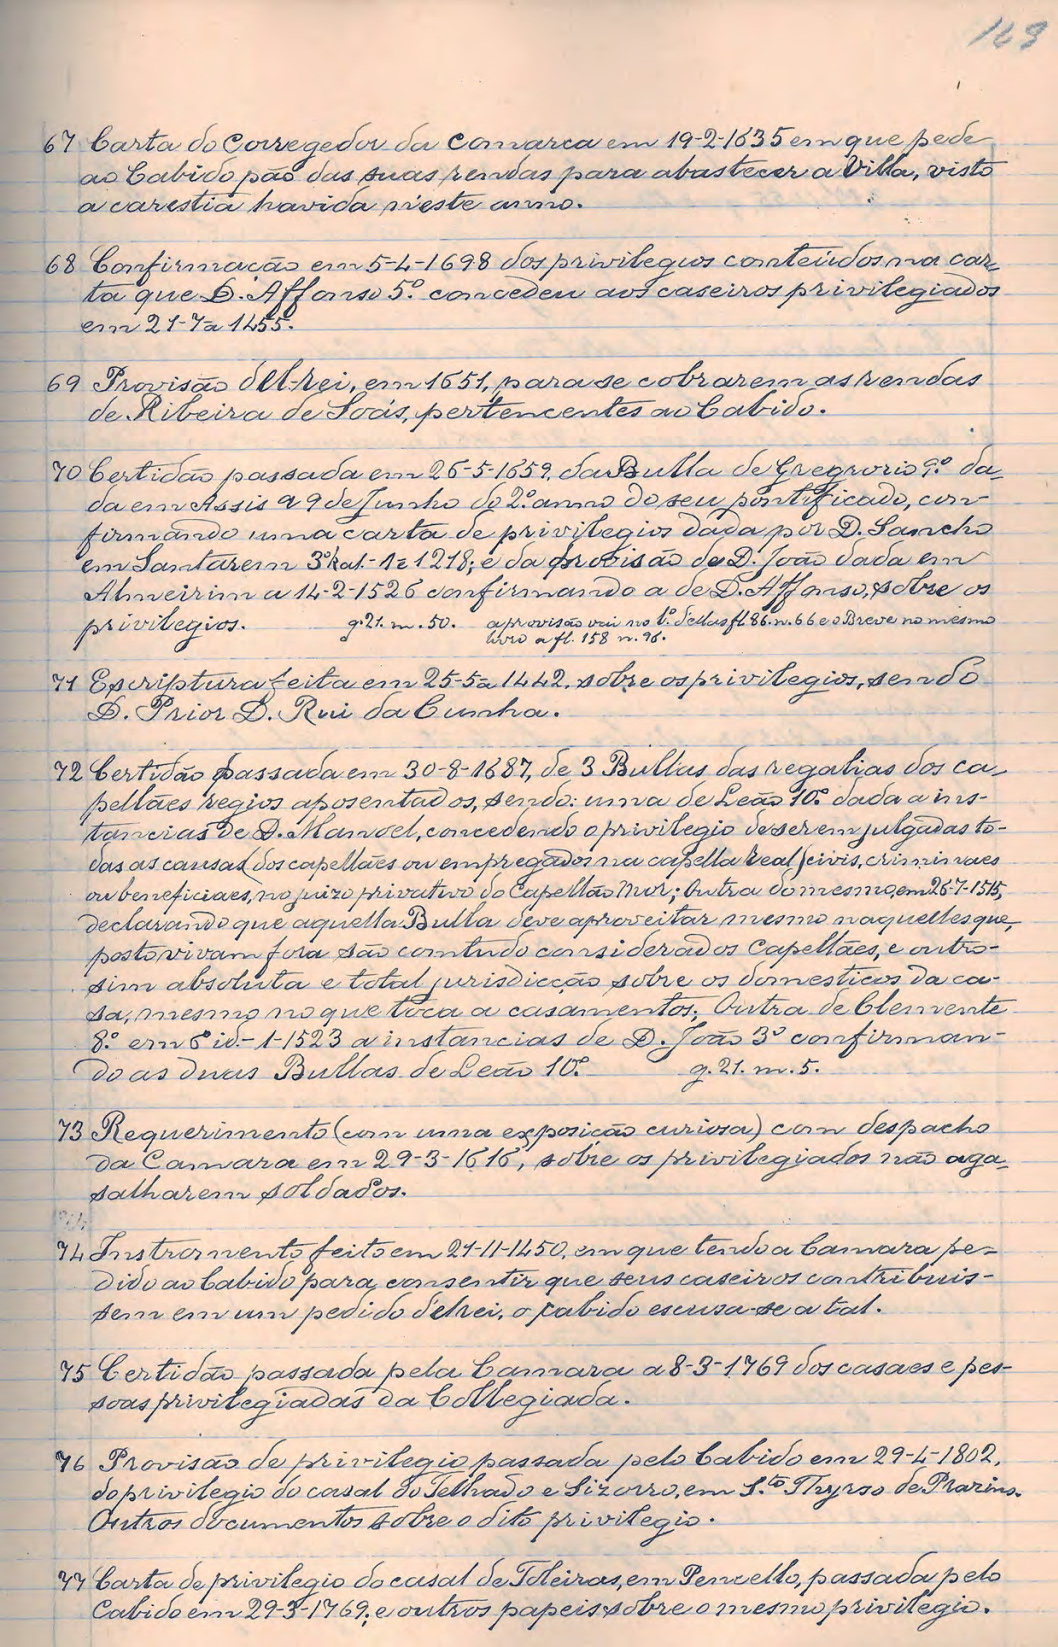 163
67 Carta do Corregedor da Comarca em 19-2-1635 em que pede
ao Cabido pão das suas rendas para abastecer a Villa, visto
a carestia havida n'este anno.
68 Confirmação em 5-4-1698 dos privilegios conteúdos na car-
ta que D. Affonso 5º concedeu aos caseiros privilegiados
em 21-7-1455.
69 Provisão del-rei, em 1651, para se cobrarem as rendas
de Ribeira de Soás, pertencentes ao Cabido.
70 Certidão passada em 26-5-1659, da Bulla de Gregrorio 9º da-
da em Assis a 9 de Junho do 2º anno do seu pontificado, con-
firmando uma carta de privilegios dada por D. Sancho
em Santarem 3º kal-1-1218; e da provisão de D. João dada em
Almeirim a 14-2-1526 confirmando a de D. Affonso, sobre os
privilegios. g. 21. m. 50. a provisão vai no lº. dellas fl 86. n. 66 e o Breve no mesmo
livro a fl. 158 n. 96.
71 Escriptura feita em 25-5-1442. sobre os privilegios, sendo
D. Prior D. Rui da Cunha.
72 Certidão passada em 30-8-1687, de 3 Bullas das regalias dos ca-
pellães regios aposentados, sendo: uma de Leão 10º dada a ins-
tancias de D. Manoel, concedendo o privilegio de serem julgadas to-
das as causas (dos capellães ou empregados na capella real) civis, criminaes
ou beneficiaes, no juizo privativo do Capellão Mor; Outra do mesmo, em 26-7-1515,
declarando que aquella Bulla deve aproveitar mesmo naquelles que,
posto vivam fora são comtudo considerados Capellães, e outro-
sim absoluta e total jurisdicção sobre os domesticos da ca-
sa, mesmo no que toca a casamentos; Outra de Clemente
8º em 6 id.-1-1523 a instancias de D. João 3º confirman-
do as duas Bullas de Leão 10º. g. 21. m. 5.
73 Requerimento (com uma exposição curiosa) com despacho
da Camara em 29-3-1616, sobre os privilegiados não aga-
salharem soldados.
74 Instromento feito em 21-11-1450, em que tendo a Camara pe-
dido ao Cabido para consentir que seus caseiros contribuis-
sem em um pedido d'elrei, o Cabido escusa-se a tal.
75 Certidão passada pela Camara a 8-3-1769 dos casaes e pes-
soas privilegiadas da Collegiada.
76 Provisão de privilegio passada pelo Cabido em 29-4-1802,
do privilegio do casal do Telhado e Sizorro, em S.to Thyrso de Prazins.
Outros documentos sobre o dito privilegio.
77 Carta de privilegio do casal de Toleiras, em Pencello, passada pelo
Cabido em 29-3-1769; e outros papeis sobre o mesmo privilegio.